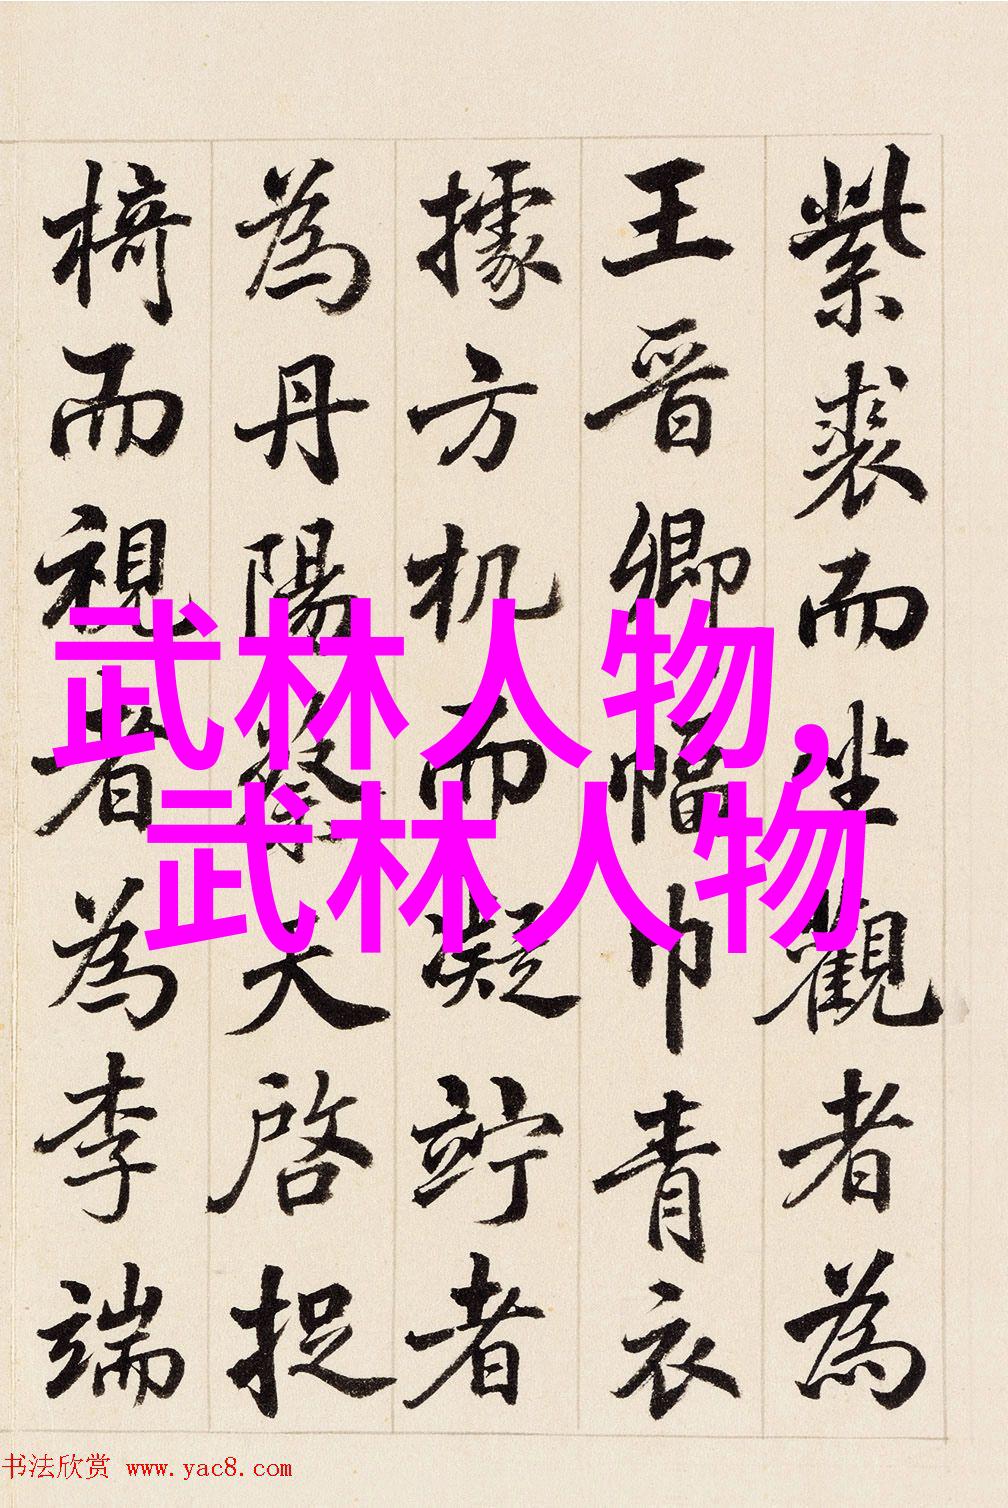 紫裘而坐觀者為
王晋卿幅巾青衣
據方机而凝竚者
為丹陽蔡天启捉
椅而視者為李端
武林人物,
武林人物
书法欣赏 www.yac8.com